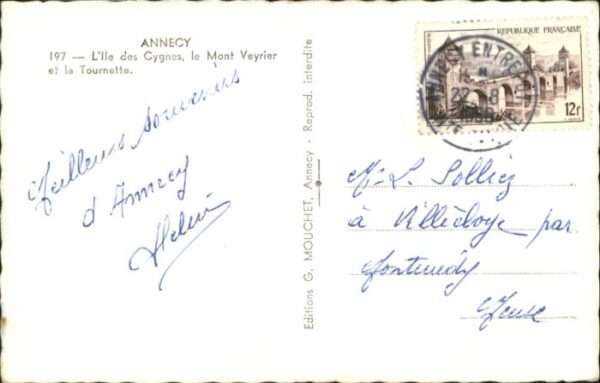 ANNECY
197 — L'Ile des Cygnes, le Mont Veyrier
et la Tournette.
Meilleurs souvenirs
d'Annecy
Editions G. MOUCHET, Annecy - Reprod. interdite
REPUBLIQUE FRANÇAISE
12F
ANNECY ENTREPOT
22-8
Mr L. Solliez
à Villécloye par
Montmédy
Meuse